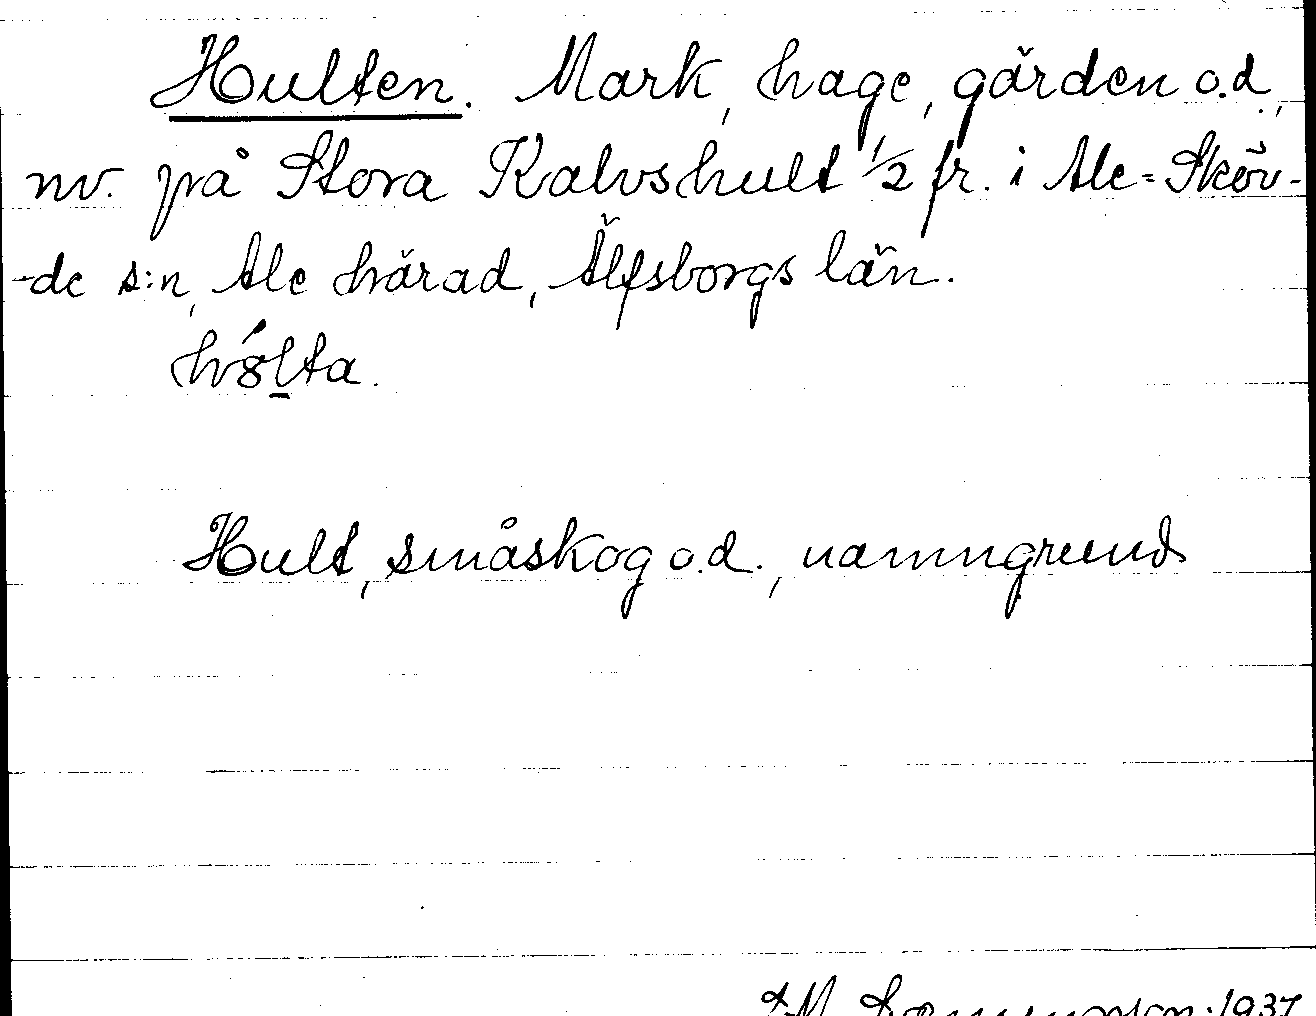 Hulten. Mark, hage, gärden o.d.,
nv. på Stora Kalvshult 1/2 fr. i Ale-Sköv-
-de s:n, Ale härad, Älfsborgs län.
hȣ́l̠ta.
Hult, småskog o.d., namngrund
1937